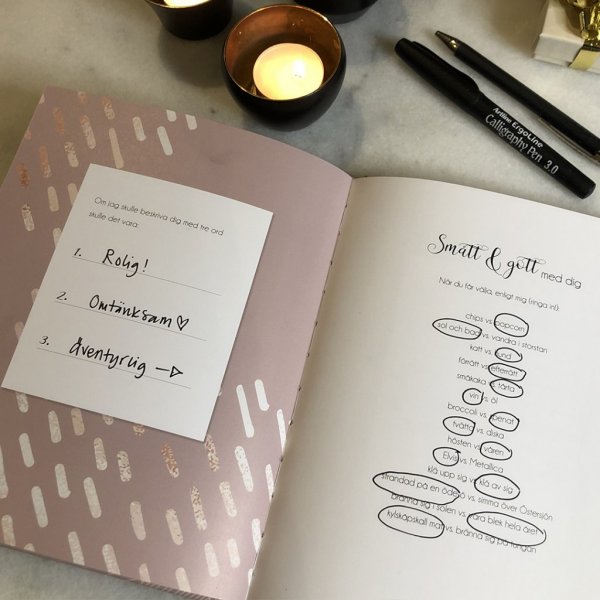 Artline ErgoLine
Calligraphy Pen 3.0
Om jag skulle beskriva dig med tre ord
skulle det vara:
1. Rolig!
2. Omtänksam ♡
3. Äventyrlig
Smått & gott med dig
När du får välja, enligt mig (ringa in!):
chips vs. popcorn
sol och bad vs. vandra i storstan
katt vs. hund
förrätt vs. efterrätt
småkaka vs. tårta
vin vs. öl
broccoli vs. spenat
tvätta vs. diska
hösten vs. våren
Elvis vs. Metallica
klä upp sig vs. klä av sig
strandad på en öde ö vs. simma över Östersjön
bränna sig i solen vs. vara blek hela året
kylskåpskall mat vs. bränna sig på tungan